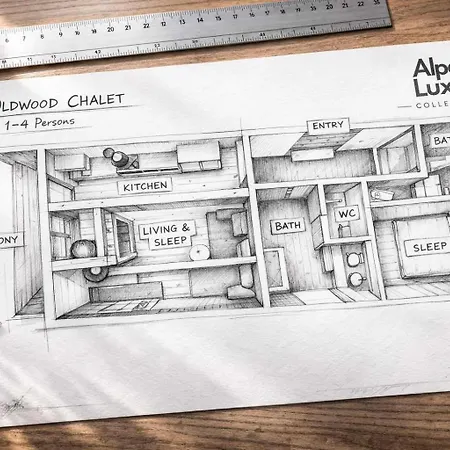 LDWOOD CHALET
1–4 Persons
Alp
Lux
— COLLE
ENTRY
BAT
KITCHEN
LIVING &
SLEEP
BATH
WC
ONY
SLEEP